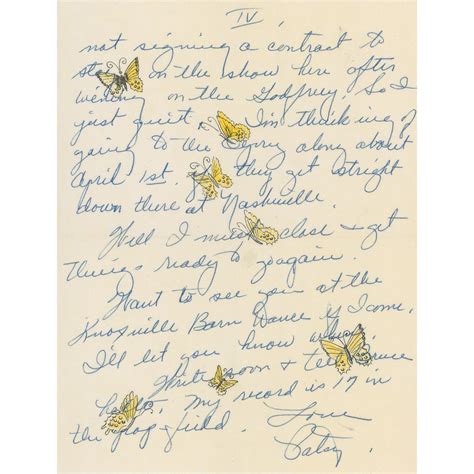 IV.
not signing a contract to
stay on the show here after
winning on the Godfrey. So I
just quit. I'm thinking of
going to the Opry along about
April 1st. If they get stright
down there at Nashville.
Well I must close & get
things ready to go again.
Want to see you at the
Knoxville Barn Dance if I come.
I'll let you know when.
Write soon & tell
hello. My record is 17 in
the pop field. Love
Patsy.